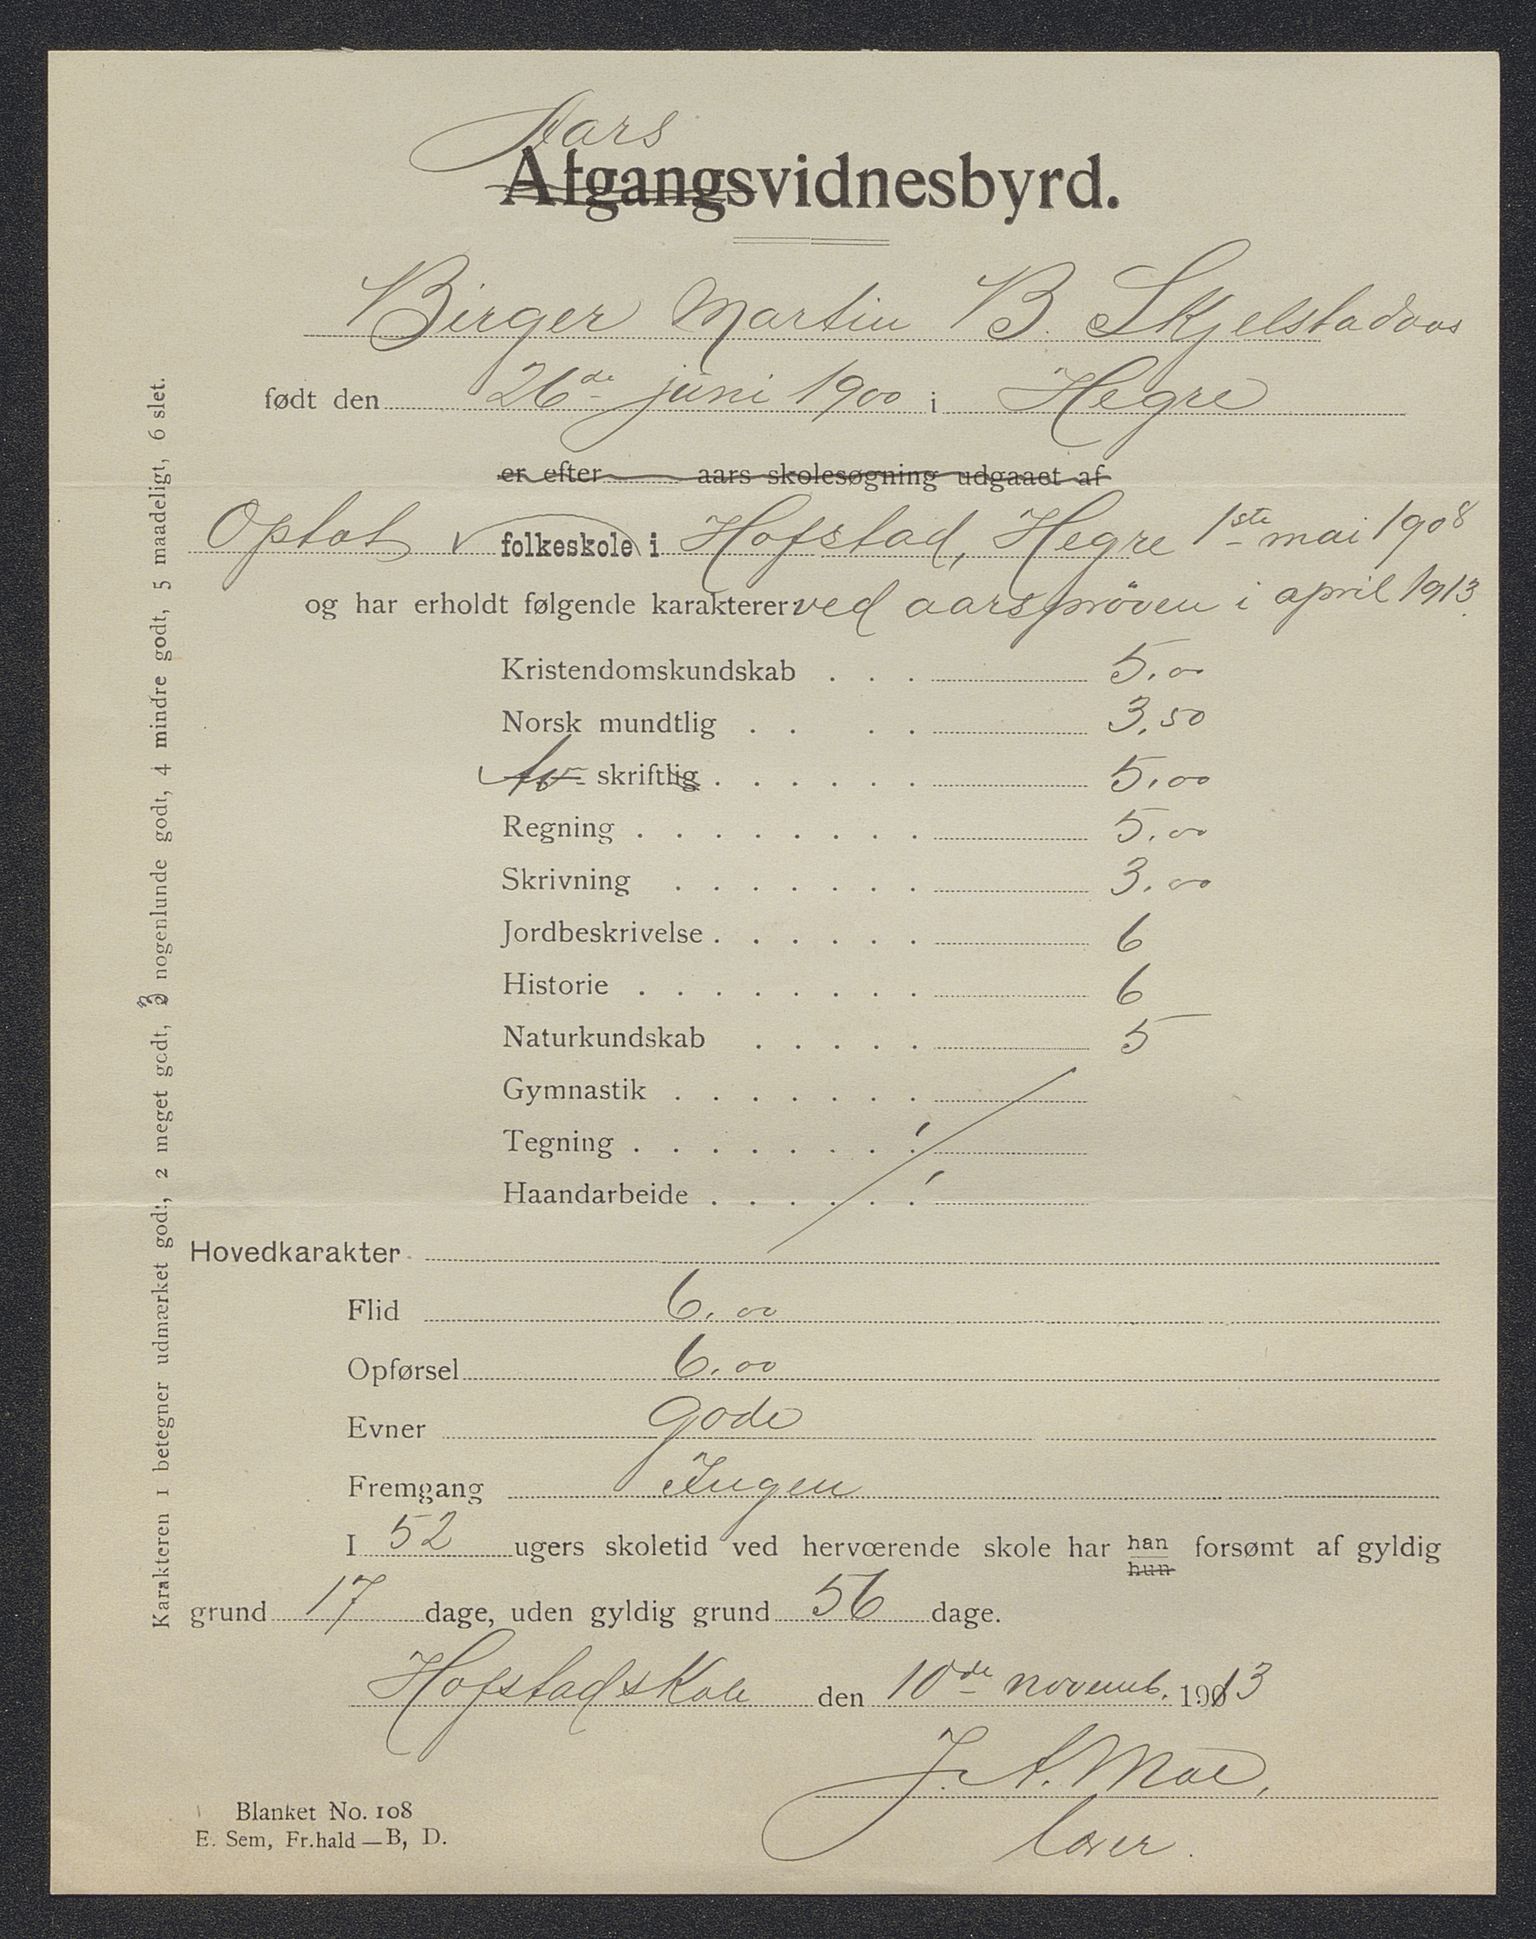 Aars
Afgangsvidnesbyrd.
Birger Martin B. Skjelstadaas
født den 26de juni 1900 i Hegre
er efter aars skolesøgning udgaaet af
Optat folkeskole i Hofstad, Hegre 1ste mai 1908
og har erholdt følgende karakterer ved aarsprøven i april 1913.
Kristendomskundskab . . . 5.00
Norsk mundtlig . . . . 3,50
skriftlig . . . . . . 5,00
Regning . . . . . . . . 5,00
Skrivning . . . . . . . 3,00
Jordbeskrivelse . . . . . . 6
Historie . . . . . . . . 6
Naturkundskab . . . . . 5
Gymnastik . . . . . . .
Tegning . . . . . . . .
Haandarbeide . . . . . .
Hovedkarakter
Flid 6.00
Opførsel 6.00
Evner gode
Fremgang Ingen
I 52 ugers skoletid ved herværende skole har han hun forsømt af gyldig
grund 17 dage, uden gyldig grund 56 dage.
Hofstad skole den 10de novemb. 1913
J. A. Moe,
lærer.
Blanket No. 108
E. Sem, Fr.hald — B, D.
Karakteren 1 betegner udmærket godt, 2 meget godt, 3 nogenlunde godt, 4 mindre godt, 5 maadeligt, 6 slet.